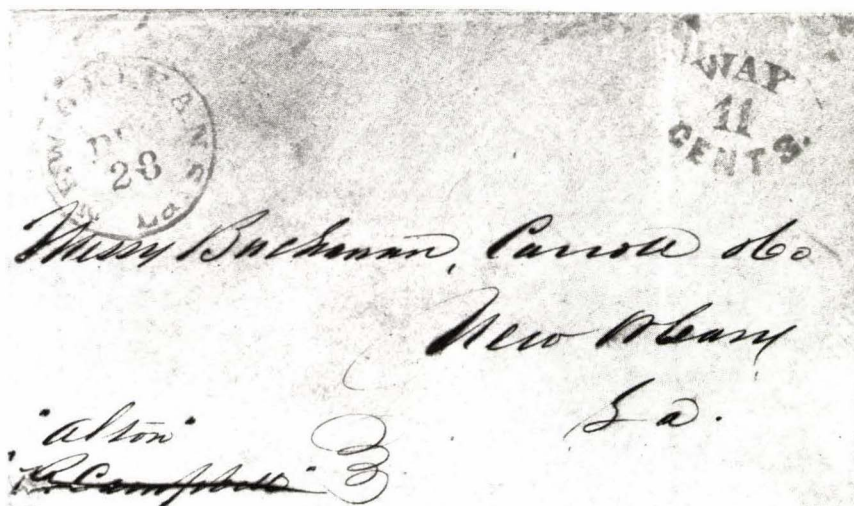 NEW ORLEANS La
DEC
28
WAY
11
CENTS
Messrs Buchanan, Carroll & Co
New Orleans
La.
"Alton"
Campbell"